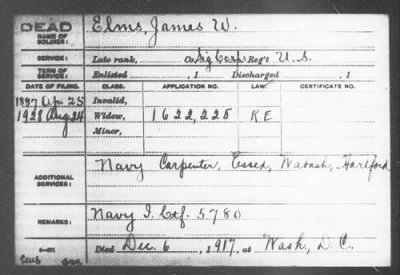 DEAD Elms, James W.
NAME OF SOLDIER:
SERVICE: Late rank, Co. Sig Corps Reg't U. S.
TERM OF SERVICE: Enlisted , 1 Discharged , 1
DATE OF FILING. CLASS. APPLICATION NO. LAW. CERTIFICATE NO.
1887 Apr 25 Invalid,
1928 Aug 24 Widow, 1622,225 R E
Minor,
ADDITIONAL SERVICES: Navy Carpenter, Essex, Wabash, Hartford
REMARKS: Navy I. Ctf. 5780
Died Dec. 6, 1917, at Wash, D. C.